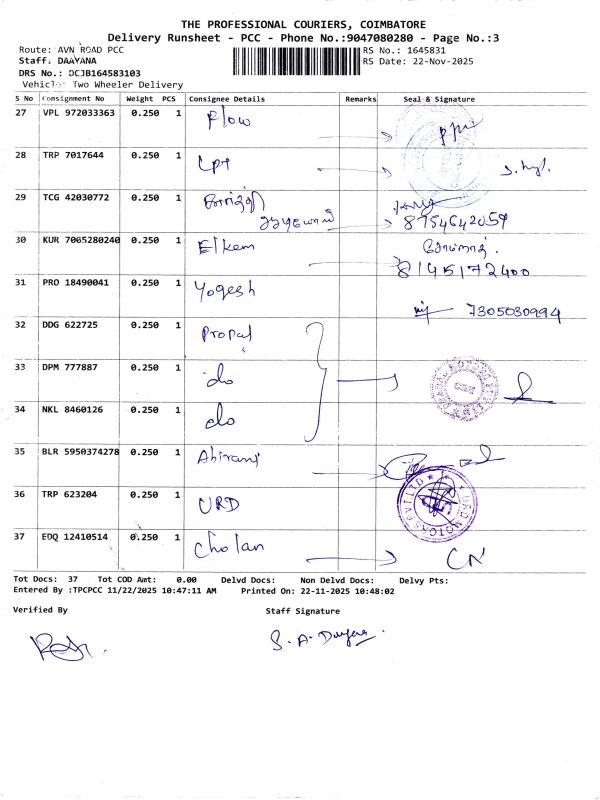 THE PROFESSIONAL COURIERS, COIMBATORE
Delivery Runsheet - PCC - Phone No.:9047080280 - Page No.:3
Route: AVN ROAD PCC RS No.: 1645831
Staff: DAAYANA RS Date: 22-Nov-2025
DRS No.: DCJB164583103
Vehicle: Two Wheeler Delivery
S No Consignment No Weight PCS Consignee Details Remarks Seal & Signature
27 VPL 972033363 0.250 1 Flow
28 TRP 7017644 0.250 1 LPT
29 TCG 42030772 0.250 1
8754642059
30 KUR 7065280240 0.250 1 Elkem
8145172400
31 PRO 18490041 0.250 1 Yogesh
7305030994
32 DDG 622725 0.250 1 Propal
33 DPM 777887 0.250 1 do
34 NKL 8460126 0.250 1 do
35 BLR 5950374278 0.250 1 Abirami
36 TRP 623204 0.250 1 URD
37 EDQ 12410514 0.250 1 Cholan CN
Tot Docs: 37 Tot COD Amt: 0.00 Delvd Docs: Non Delvd Docs: Delvy Pts:
Entered By :TPCPCC 11/22/2025 10:47:11 AM Printed On: 22-11-2025 10:48:02
Verified By Staff Signature